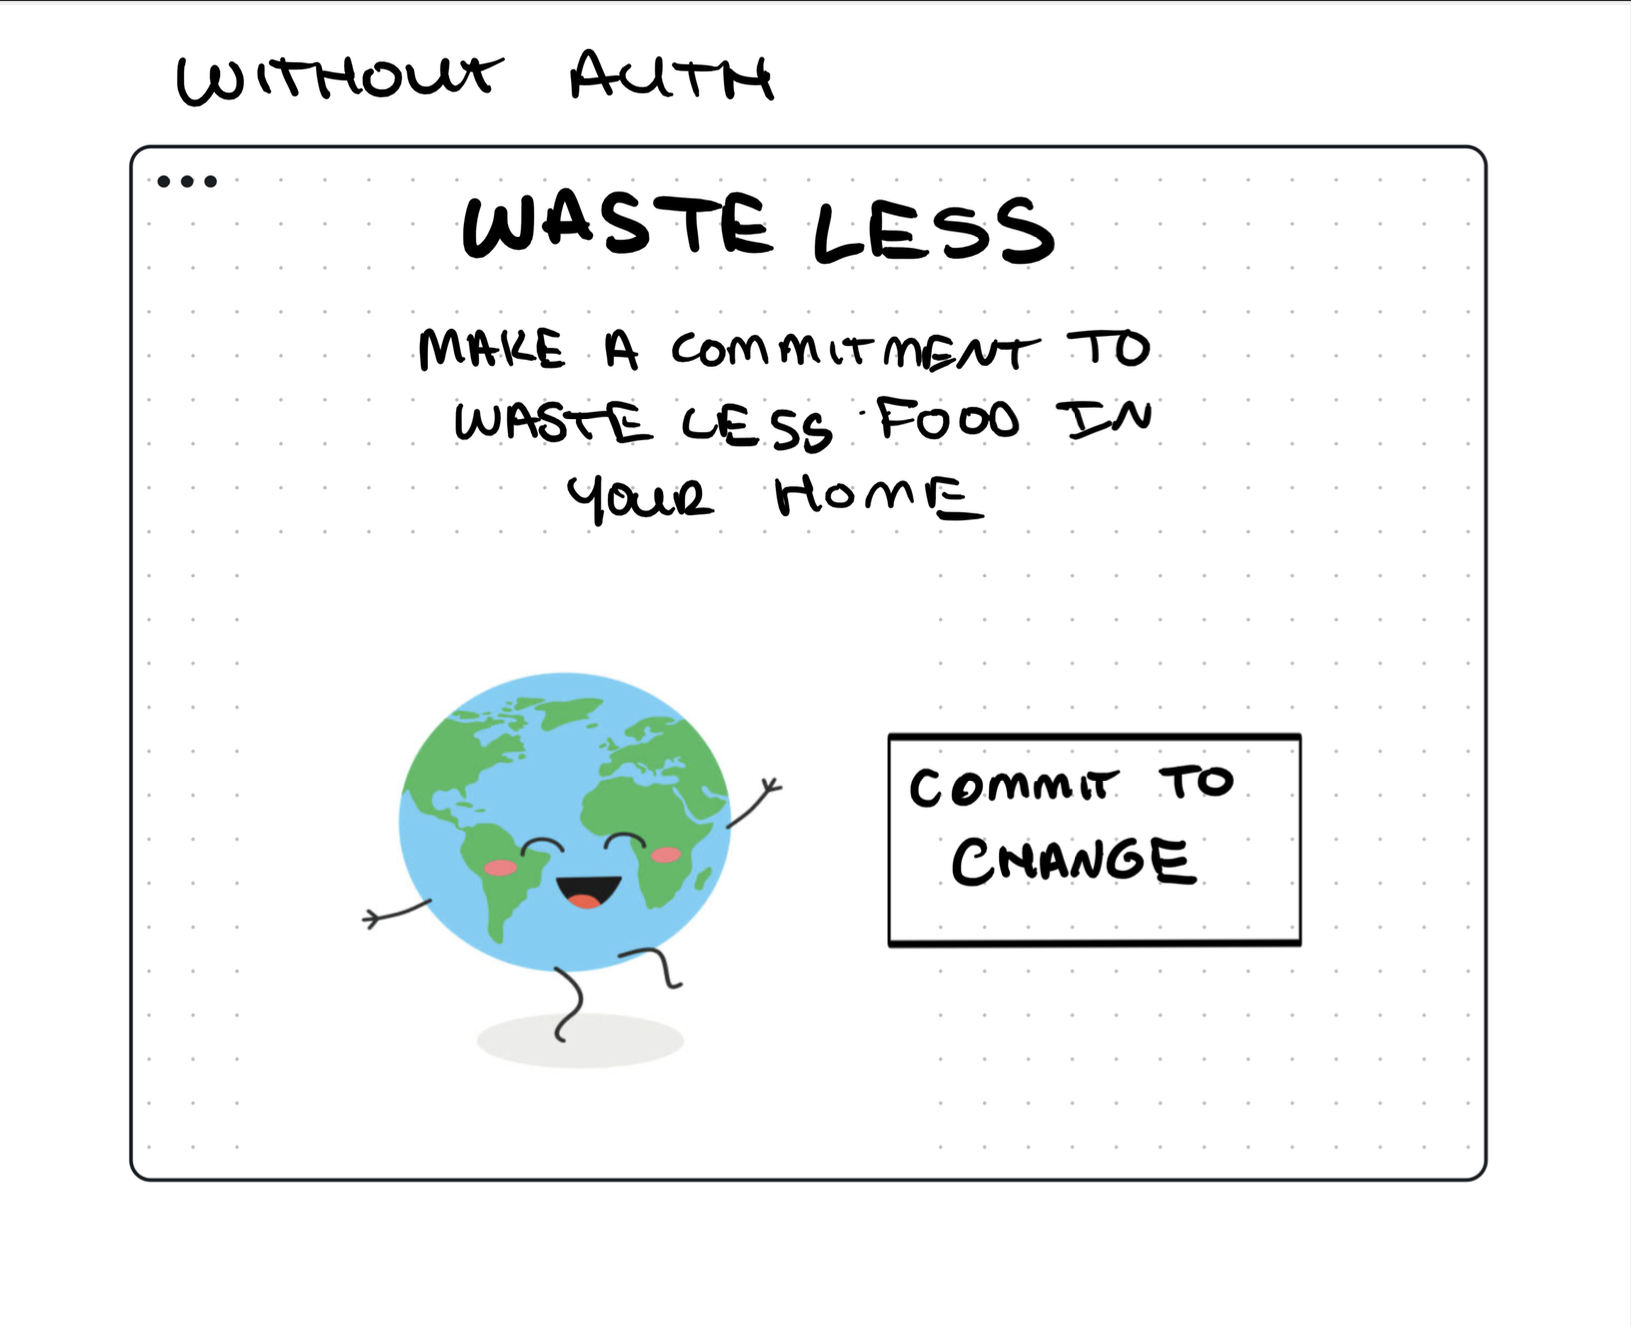 WITHOUT AUTH
WASTE LESS
MAKE A COMMITMENT TO
WASTE LESS FOOD IN
YOUR HOME
COMMIT TO
CHANGE